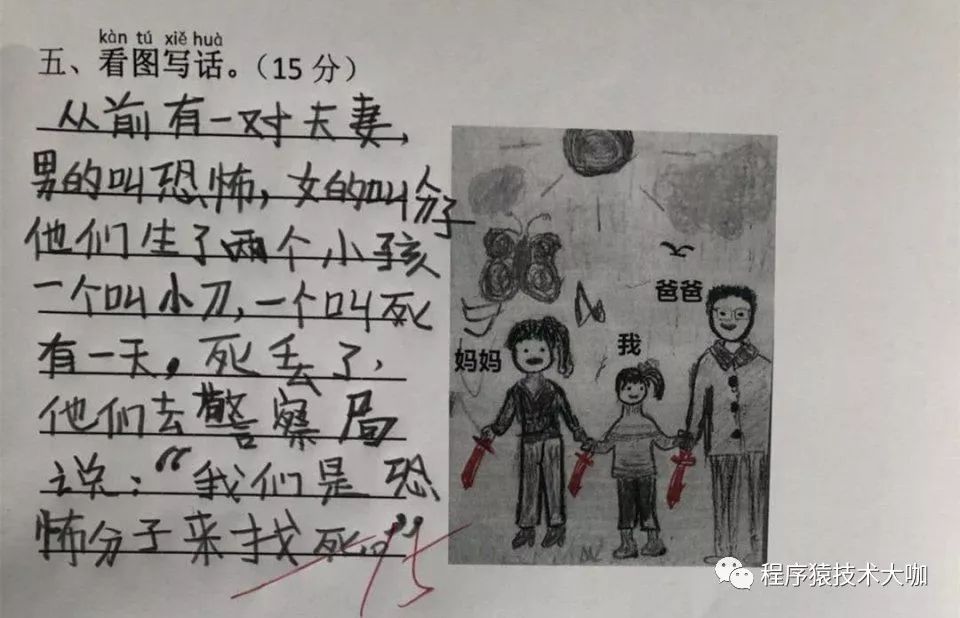 kàn tú xiě huà
五、看图写话。（15 分）
从前有一对夫妻，
男的叫恐怖，女的叫分子
他们生了两个小孩
一个叫小刀，一个叫死
有一天，死丢了，
他们去警察局
说：“我们是恐
怖分子来找死。”
-15
妈妈
我
爸爸
程序猿技术大咖